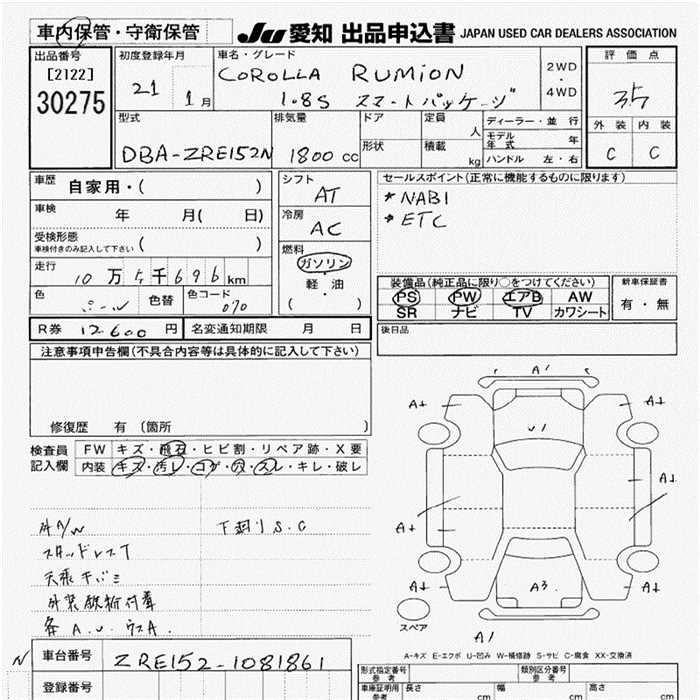 車内保管・守衛保管
JU 愛知 出品申込書 JAPAN USED CAR DEALERS ASSOCIATION
出品番号
[2122]
30275
初度登録年月
21 1月
車名・グレード
COROLLA RUMION
1.8S スマートパッケージ
2WD
・
4WD
評価点
35
外装 内装
C C
型式
DBA-ZRE152N
排気量
1800 cc
ドア
形状
定員
人
積載
kg
ディーラー・並行
モデル年式 年
ハンドル 左・右
車歴 自家用・( )
車検 年 月( 日)
受検形態
車検付きのみ記入して下さい ( )
走行 10万5千696km
色 色替 色コード 070
シフト
AT
冷房
AC
燃料
ガソリン
・
軽・油
( )
セールスポイント(正常に機能するものに限ります)
* NABI
* ETC
装備品(純正品に限り○をつけてください)
PS PW エアB AW
SR ナビ TV カワシート
新車保証書
有・無
後日品
R券 12,600円 名変通知期限 月 日
注意事項申告欄(不具合内容等は具体的に記入して下さい)
修復歴 有 〔箇所 〕
検査員記入欄
FW キズ・飛石・ヒビ割・リペア跡・X要
内装 キズ・汚レ・コゲ・穴・スレ・キレ・破レ
社外A/W 下廻りS.C
スタッドレスT
天張キバミ
外装鉄粉付着
各A.U.ウスA.
A1
A1 A1
U1
A1
A1 A1
A3
A1 A1
A1
スペア
A-キズ E-エクボ U-凹み W-補修跡 S-サビ C-腐食 XX-交換済
N 車台番号 ZRE152-1081861
登録番号
形式指定番号 類別区分番号
車庫証明用参考 長さ cm 幅 cm 高さ cm